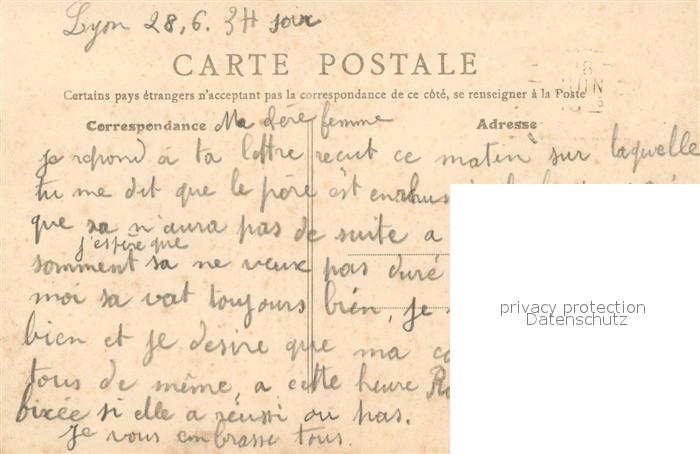 Lyon 28, 6. 3H soir
CARTE POSTALE
Certains pays étrangers n'acceptant pas la correspondance de ce côté, se renseigner à la Poste
Correspondance Ma chère femme Adresse
je repond a ta lettre recut ce matin sur laquelle
tu me dit que le père est enrhus
que sa n'aura pas de suite a
j'espère que
somment sa ne veux pas duré
moi sa vat toujours bien, je
bien et je desire que ma
tous de même, a cette heure
bixée si elle a réussi ou pas.
je vous embrasse tous.
privacy protection
Datenschutz